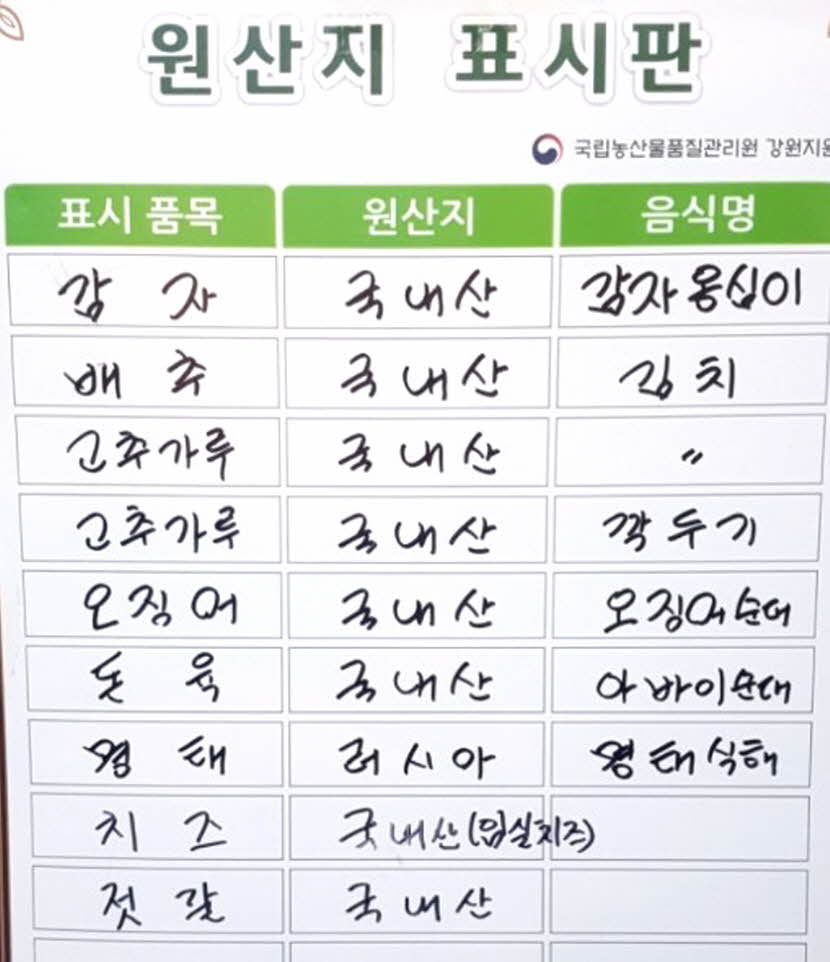 원산지 표시판
국립농산물품질관리원 강원지원
표시 품목 원산지 음식명
감자 국내산 감자옹심이
배추 국내산 김치
고추가루 국내산 〃
고추가루 국내산 깍두기
오징어 국내산 오징어순대
돈육 국내산 아바이순대
명태 러시아 명태식해
치즈 국내산(임실치즈)
젓갈 국내산